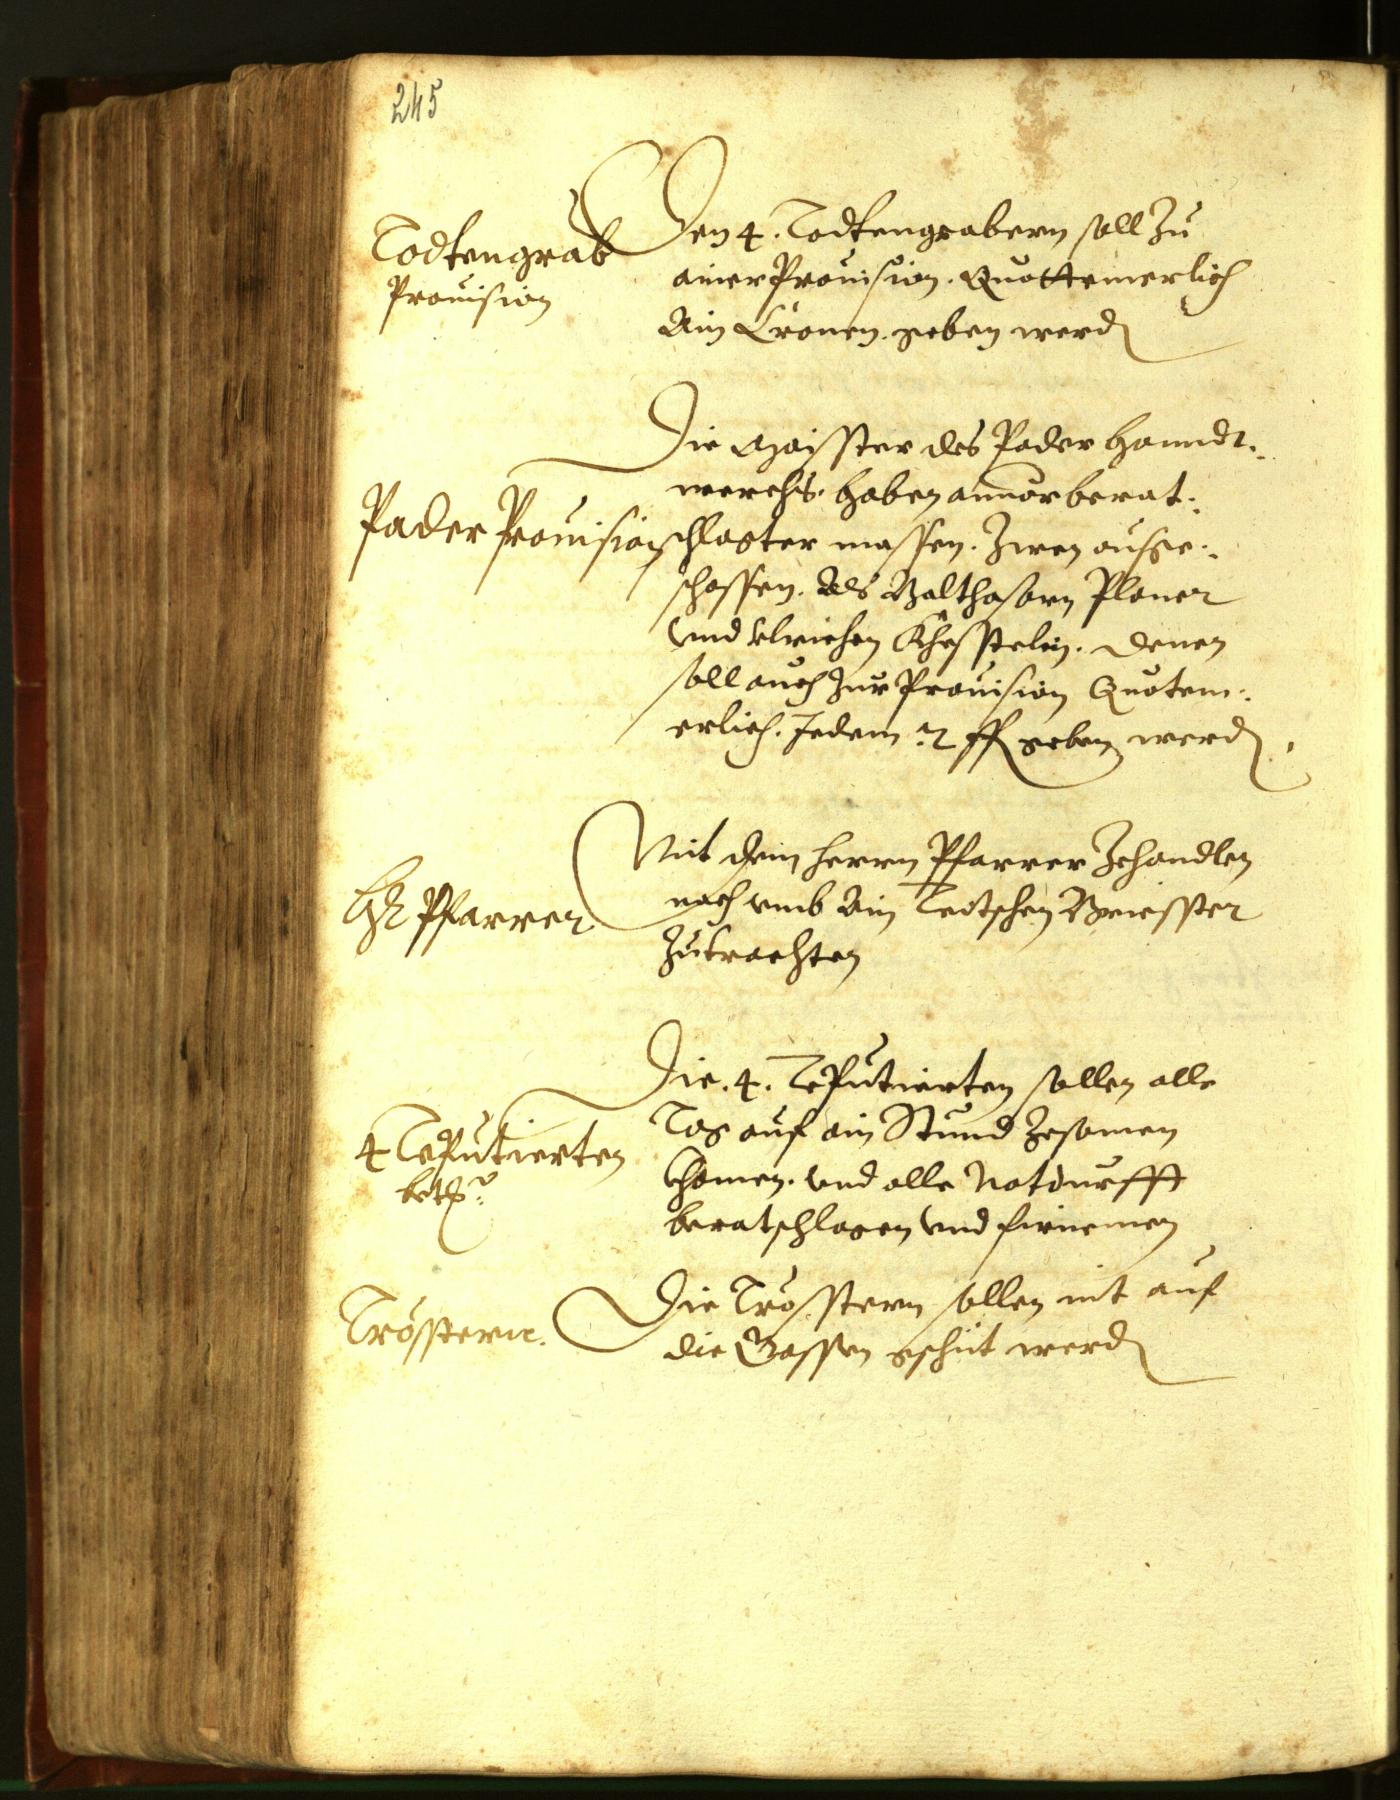 245
Todtengrab
Prouision
Den 4. Todtengrabern soll zu
ainer Prouision. Quottemerlich
Ain Cronen. geben werd
Pader Prouision
Die Maisster des Pader Hanndt:
werchs. haben annor berat:
schlagter massen. Zwen ausge:
schossen. Als Balthasarn Planer
vnd Vlrichen Khesstelin. denen
soll auch zur Prouision Quotem:
erlich. Jedem 2 ff geben werd.
Hr Pfarrer
Mit dem Herrn Pfarrer zehandlen
nach vmb Ain Teitschen Briesster
zutrachten
4 Teputierten
Die .4. Teputierten sollen alle
Tag auf ain Stund zesamen
khomen. vnd alle Notdurfft
beratschlagen vnd firnemen
Trösstern.
Die Trösstern sollen nit auf
die Gassen gschüt werd